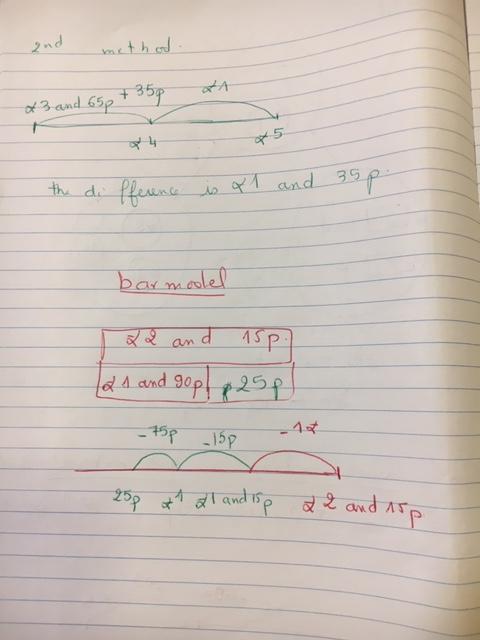 2nd method.
+ 35p £1
£3 and 65p
£4 £5
the difference is £1 and 35p.
bar model
£2 and 15p.
£1 and 90p 25p
-75p -15p -1£
25p £1 £1 and 15p £2 and 15p